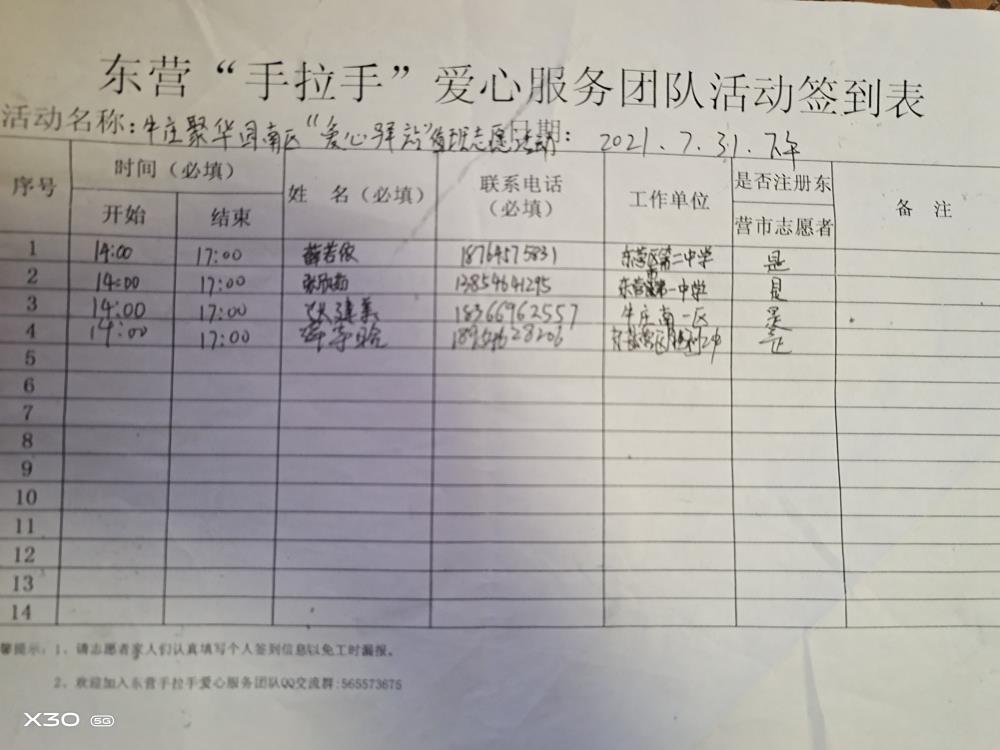 东营“手拉手”爱心服务团队活动签到表
活动名称：牛庄聚华园南区“爱心驿站”值班志愿活动 日期：2021.7.31.下午
序号 时间（必填） 姓 名（必填） 联系电话（必填） 工作单位 是否注册东营市志愿者 备 注
开始 结束
1 14:00 17:00 薛若依 18764575831 东营区第二中学 是
2 14:00 17:00 13854641295 东营市第一中学 是
3 14:00 17:00 建美 18366962557 牛庄南一区 是
4 14:00 17:00 是
5
6
7
8
9
10
11
12
13
14
馨提示：1、请志愿者家人们认真填写个人签到信息以免工时漏报。
2、欢迎加入东营手拉手爱心服务团队QQ交流群:565573675
X30 5G